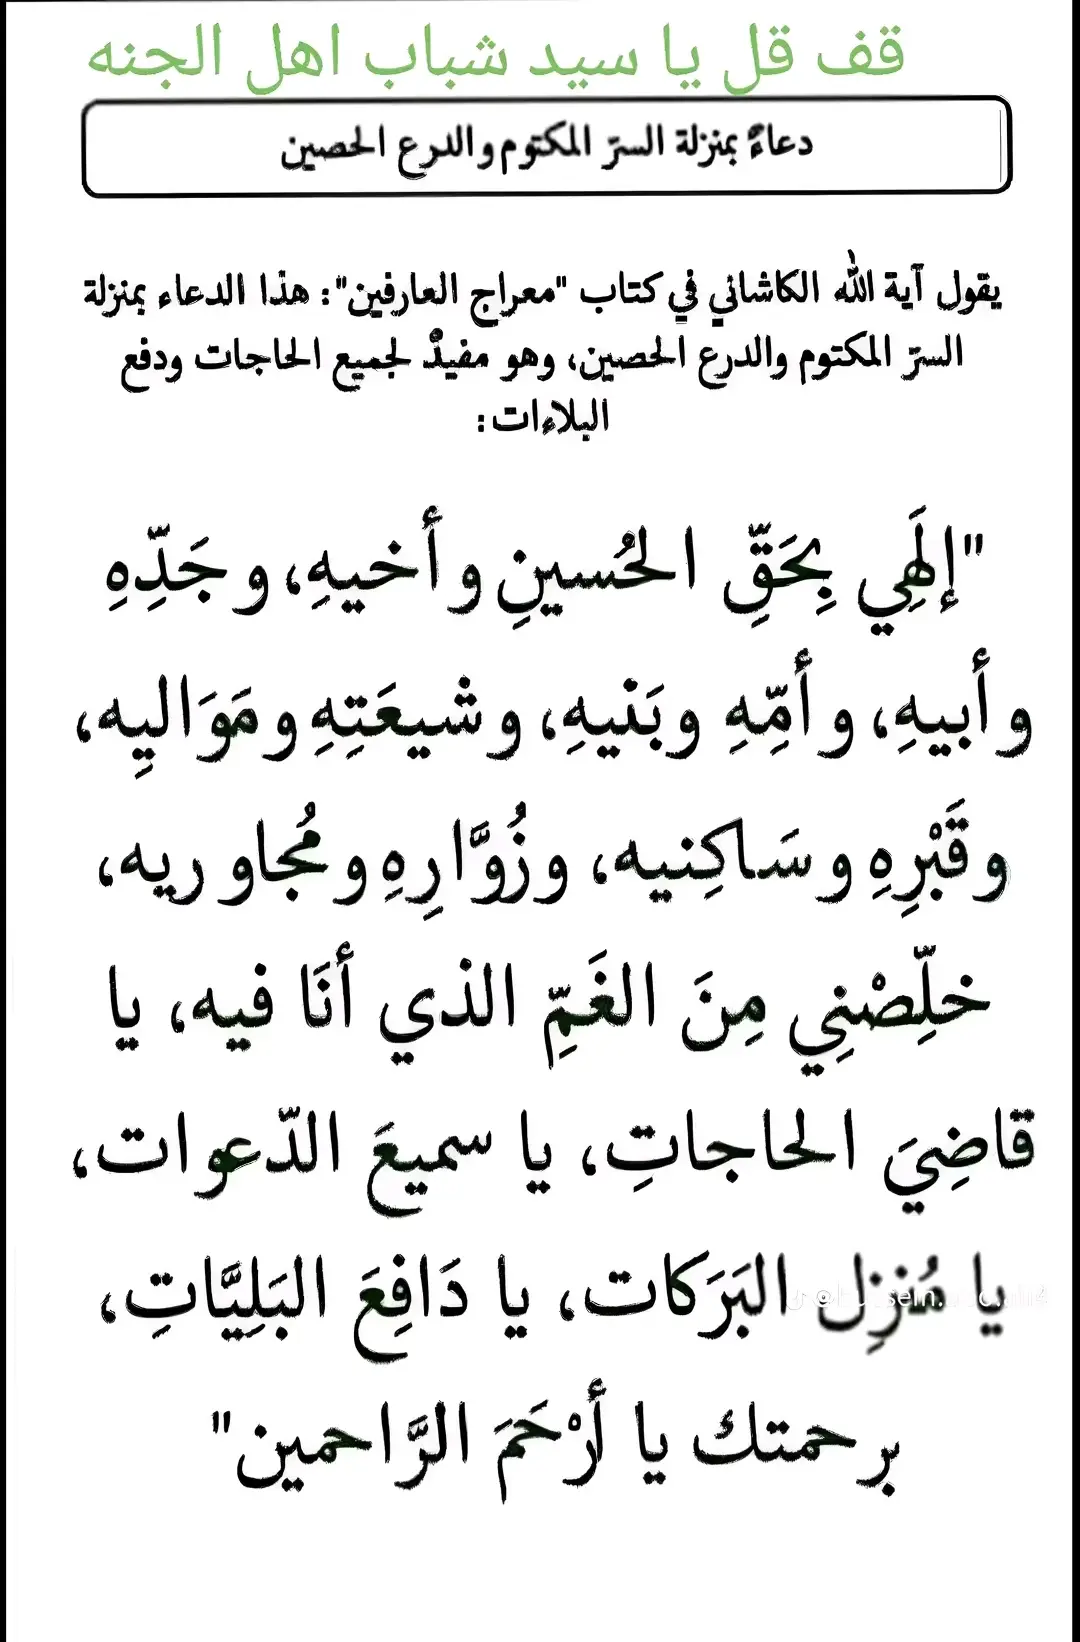 قف قل يا سيد شباب اهل الجنه
دعاءٌ بمنزلة السرّ المكتوم والدرع الحصين
يقول آية الله الكاشاني في كتاب "معراج العارفين": هذا الدعاء بمنزلة
السرّ المكتوم والدرع الحصين، وهو مفيدٌ لجميع الحاجات ودفع
البلاءات:
"إلَهِي بِحَقِّ الحُسينِ وأخيهِ، وجَدِّهِ
وأبيهِ، وأمِّهِ وبَنيهِ، وشيعَتِهِ ومَوَاليِه،
وقَبْرِهِ وسَاكِنيه، وزُوَّارِهِ ومُجاوريه،
خلِّصْنِي مِنَ الغَمِّ الذي أنَا فيه، يا
قاضِيَ الحاجاتِ، يا سميعَ الدّعوات،
يا مُنزِل البَرَكات، يا دَافِعَ البَلِيَّاتِ،
برحمتك يا أرْحَمَ الرَّاحمين"